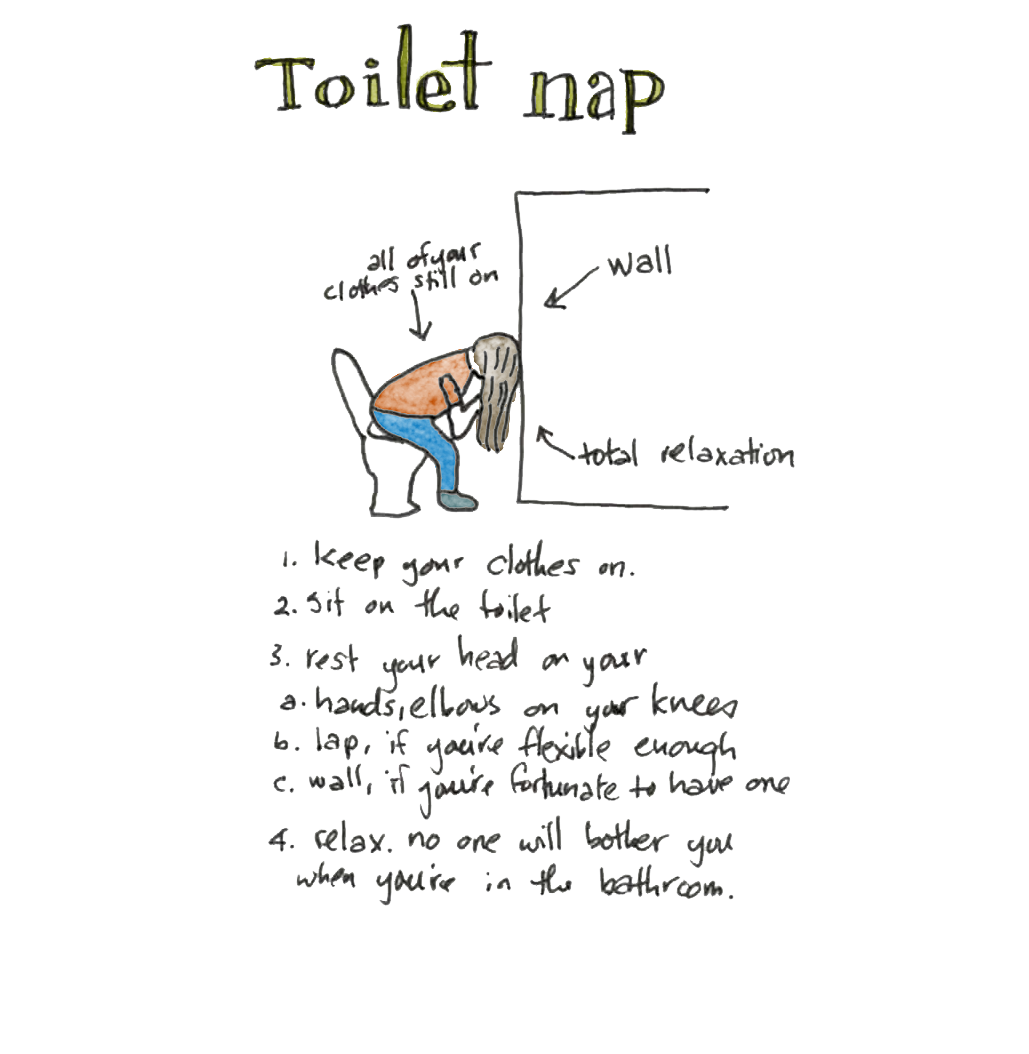 Toilet nap
all of your
clothes still on
wall
total relaxation
1. keep your clothes on.
2. sit on the toilet
3. rest your head on your
a. hands, elbows on your knees
b. lap, if you're flexible enough
c. wall, if you're fortunate to have one
4. relax. no one will bother you
when you're in the bathroom.